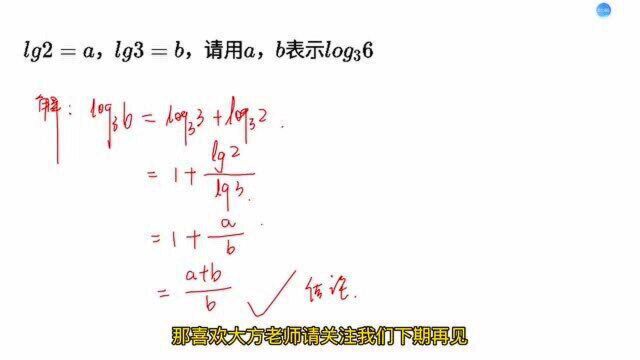 lg2 = a，lg3 = b，请用a，b表示log₃6
解：log₃6 = log₃3 + log₃2.
= 1 + lg2/lg3.
= 1 + a/b
= (a+b)/b ✓ 结论.
那喜欢大方老师请关注我们下期再见